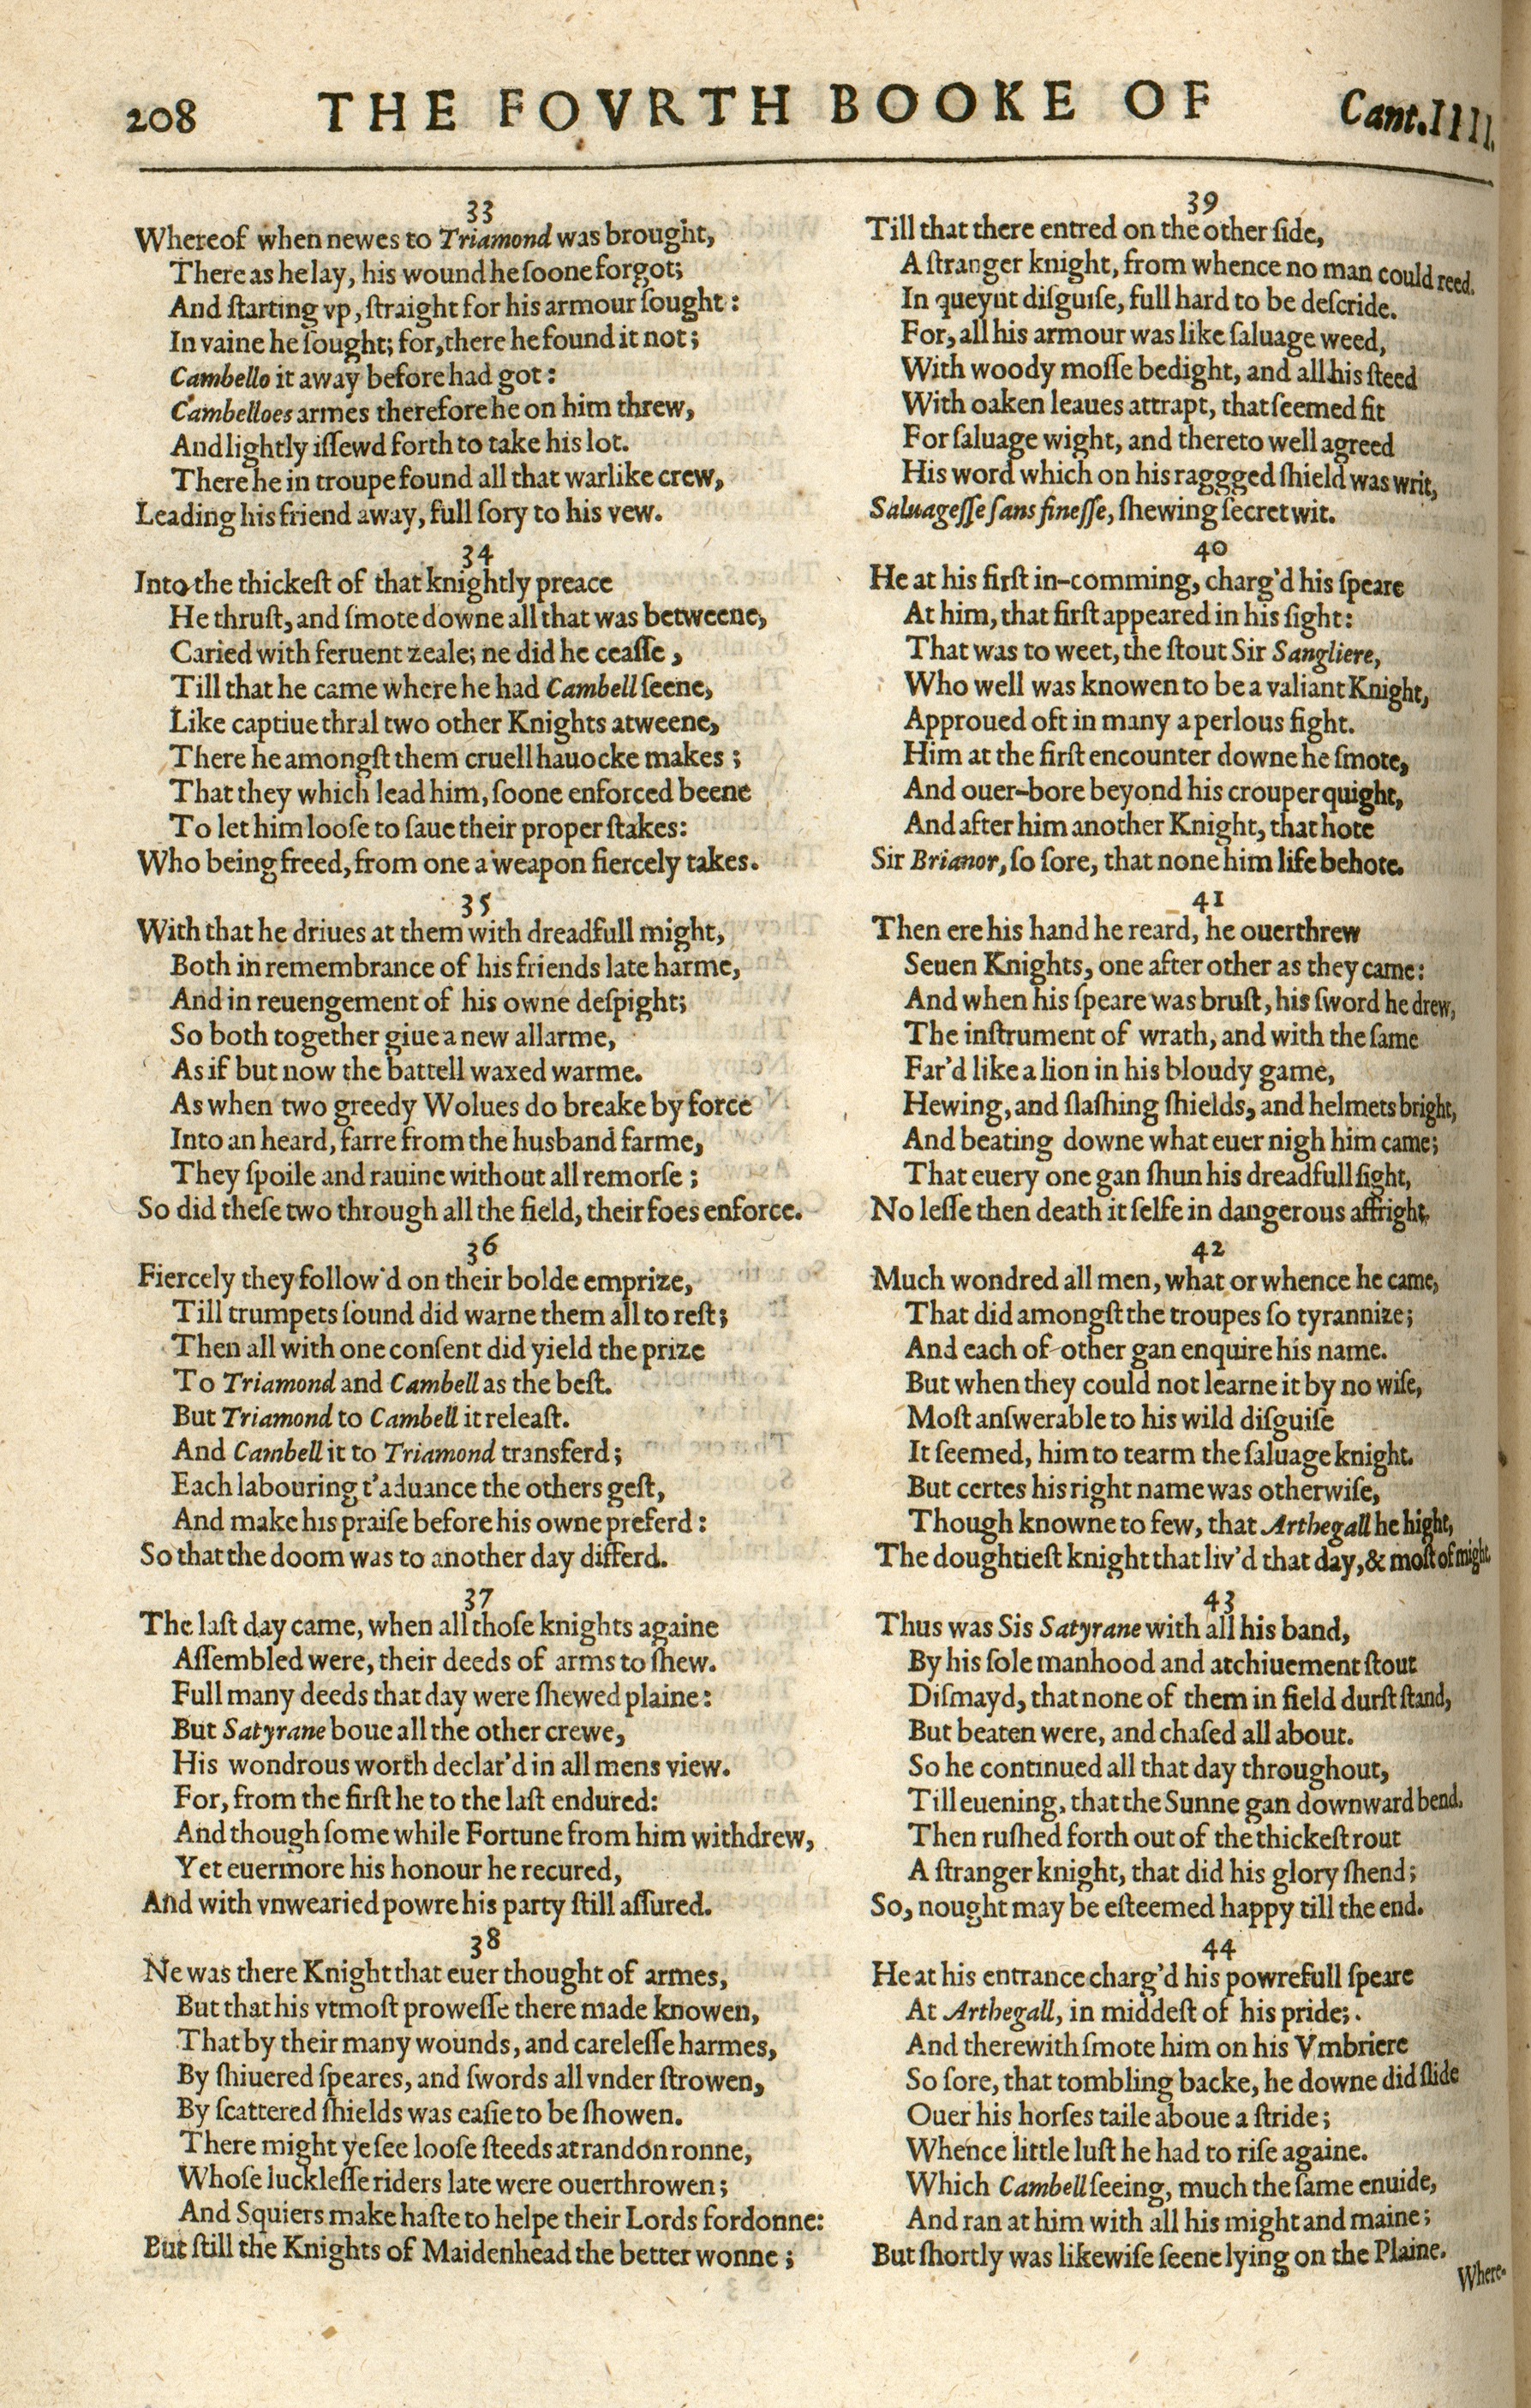 208 THE FOVRTH BOOKE OF Cant.IIII.
33
Whereof when newes to Triamond was brought,
There as he lay, his wound he ſoone forgot;
And ſtarting vp, ſtraight for his armour ſought:
In vaine he ſought; for, there he found it not;
Cambello it away before had got:
Cambelloes armes therefore he on him threw,
And lightly iſſewd forth to take his lot.
There he in troupe found all that warlike crew,
Leading his friend away, full ſory to his vew.
34
Into the thickeſt of that knightly preace
He thruſt, and ſmote downe all that was betweene,
Caried with feruent zeale; ne did he ceaſſe,
Till that he came where he had Cambell ſeene,
Like captiue thral two other Knights atweene,
There he amongſt them cruell hauocke makes;
That they which lead him, ſoone enforced beene
To let him looſe to ſaue their proper ſtakes:
Who being freed, from one a weapon fiercely takes.
35
With that he driues at them with dreadfull might,
Both in remembrance of his friends late harme,
And in reuengement of his owne deſpight;
So both together giue a new allarme,
As if but now the battell waxed warme.
As when two greedy Wolues do breake by force
Into an heard, farre from the husband farme,
They ſpoile and rauine without all remorſe;
So did theſe two through all the field, their foes enforce.
36
Fiercely they follow'd on their bolde emprize,
Till trumpets ſound did warne them all to reſt;
Then all with one conſent did yield the prize
To Triamond and Cambell as the beſt.
But Triamond to Cambell it releaſt.
And Cambell it to Triamond transferd;
Each labouring t'aduance the others geſt,
And make his praiſe before his owne preferd:
So that the doom was to another day differd.
37
The laſt day came, when all thoſe knights againe
Aſſembled were, their deeds of arms to ſhew.
Full many deeds that day were ſhewed plaine:
But Satyrane boue all the other crewe,
His wondrous worth declar'd in all mens view.
For, from the firſt he to the laſt endured:
And though ſome while Fortune from him withdrew,
Yet euermore his honour he recured,
And with vnwearied powre his party ſtill aſſured.
38
Ne was there Knight that euer thought of armes,
But that his vtmoſt proweſſe there made knowen,
That by their many wounds, and careleſſe harmes,
By ſhiuered ſpeares, and ſwords all vnder ſtrowen,
By ſcattered ſhields was eaſie to be ſhowen.
There might ye ſee looſe ſteeds at randon ronne,
Whoſe luckleſſe riders late were ouerthrowen;
And Squiers make haſte to helpe their Lords fordonne:
But ſtill the Knights of Maidenhead the better wonne;
39
Till that there entred on the other ſide,
A ſtranger knight, from whence no man could reed.
In queynt diſguiſe, full hard to be deſcride.
For, all his armour was like ſaluage weed,
With woody moſſe bedight, and all his ſteed
With oaken leaues attrapt, that ſeemed fit
For ſaluage wight, and thereto well agreed
His word which on his raggged ſhield was writ,
Saluageſſe ſans fineſſe, ſhewing ſecret wit.
40
He at his firſt in-comming, charg'd his ſpeare
At him, that firſt appeared in his ſight:
That was to weet, the ſtout Sir Sangliere,
Who well was knowen to be a valiant Knight,
Approued oft in many a perlous fight.
Him at the firſt encounter downe he ſmote,
And ouer-bore beyond his crouper quight,
And after him another Knight, that hote
Sir Brianor, ſo ſore, that none him life behote.
41
Then ere his hand he reard, he ouerthrew
Seuen Knights, one after other as they came:
And when his ſpeare was bruſt, his ſword he drew,
The inſtrument of wrath, and with the ſame
Far'd like a lion in his bloudy game,
Hewing, and ſlaſhing ſhields, and helmets bright,
And beating downe what euer nigh him came;
That euery one gan ſhun his dreadfull ſight,
No leſſe then death it ſelfe in dangerous affright.
42
Much wondred all men, what or whence he came,
That did amongſt the troupes ſo tyrannize;
And each of other gan enquire his name.
But when they could not learne it by no wiſe,
Moſt anſwerable to his wild diſguiſe
It ſeemed, him to tearm the ſaluage knight.
But certes his right name was otherwiſe,
Though knowne to few, that Arthegall he hight,
The doughtieſt knight that liv'd that day, & moſt of might.
43
Thus was Sis Satyrane with all his band,
By his ſole manhood and atchiuement ſtout
Diſmayd, that none of them in field durſt ſtand,
But beaten were, and chaſed all about.
So he continued all that day throughout,
Till euening, that the Sunne gan downward bend.
Then ruſhed forth out of the thickeſt rout
A ſtranger knight, that did his glory ſhend;
So, nought may be eſteemed happy till the end.
44
He at his entrance charg'd his powrefull ſpeare
At Arthegall, in middeſt of his pride;.
And therewith ſmote him on his Vmbriere
So ſore, that tombling backe, he downe did ſlide
Ouer his horſes taile aboue a ſtride;
Whence little luſt he had to riſe againe.
Which Cambell ſeeing, much the ſame enuide,
And ran at him with all his might and maine;
But ſhortly was likewiſe ſeene lying on the Plaine.
Where-